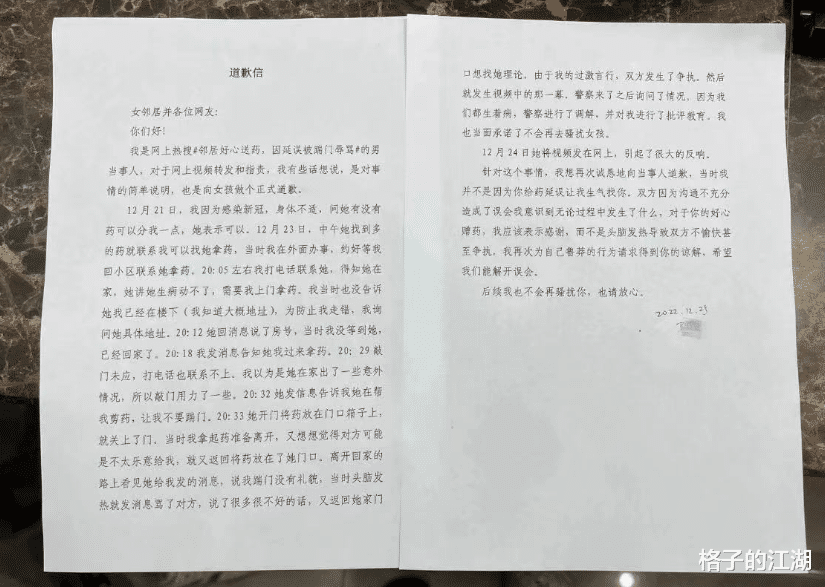 道歉信
女邻居并各位网友：
你们好！
我是网上热搜#邻居好心送药，因延误被踹门辱骂#的男
当事人，对于网上视频转发和指责，我有些话想说，是对事
情的简单说明，也是向女孩做个正式道歉。
12月21日，我因为感染新冠，身体不适，问她有没有
药可以分我一点，她表示可以。12月23日，中午她找到多
的药就联系我可以找她拿药，当时我在外面办事，约好等我
回小区联系她拿药。20:05左右我打电话联系她，得知她在
家，她讲她生病动不了，需要我上门拿药。我当时也没告诉
她我已经在楼下（我知道大概地址），为防止我走错，我询
问她具体地址。20:12她回消息说了房号，当时我没等到她，
已经回家了。20:18我发消息告知她我过来拿药。20；29敲
门未应，打电话也联系不上。我以为是她在家出了一些意外
情况，所以敲门用力了一些。20:32她发信息告诉我她在帮
我剪药，让我不要踹门。20:33她开门将药放在门口箱子上，
就关上了门。当时我拿起药准备离开，又想想觉得对方可能
是不太乐意给我，就又返回将药放在了她门口。离开回家的
路上看见她给我发的消息，说我踹门没有礼貌，当时头脑发
热就发消息骂了对方，说了很多很不好的话，又返回她家门
口想找她理论。由于我的过激言行，双方发生了争执。然后
就发生视频中的那一幕。警察来了之后询问了情况，因为我
们都生着病，警察进行了调解，并对我进行了批评教育。我
也当面承诺了不会再去骚扰女孩。
12月24日她将视频发在网上，引起了很大的反响。
针对这个事情，我想再次诚恳地向当事人道歉，当时我
并不是因为你给药延误让我生气我你。双方因为沟通不充分
造成了误会我意识到无论过程中发生了什么，对于你的好心
赠药，我应该表示感谢，而不是头脑发热导致双方不愉快甚
至争执，我再次为自己鲁莽的行为请求得到你的谅解，希望
我们能解开误会。
后续我也不会再骚扰你，也请放心。
2022.12.25
格子的江湖